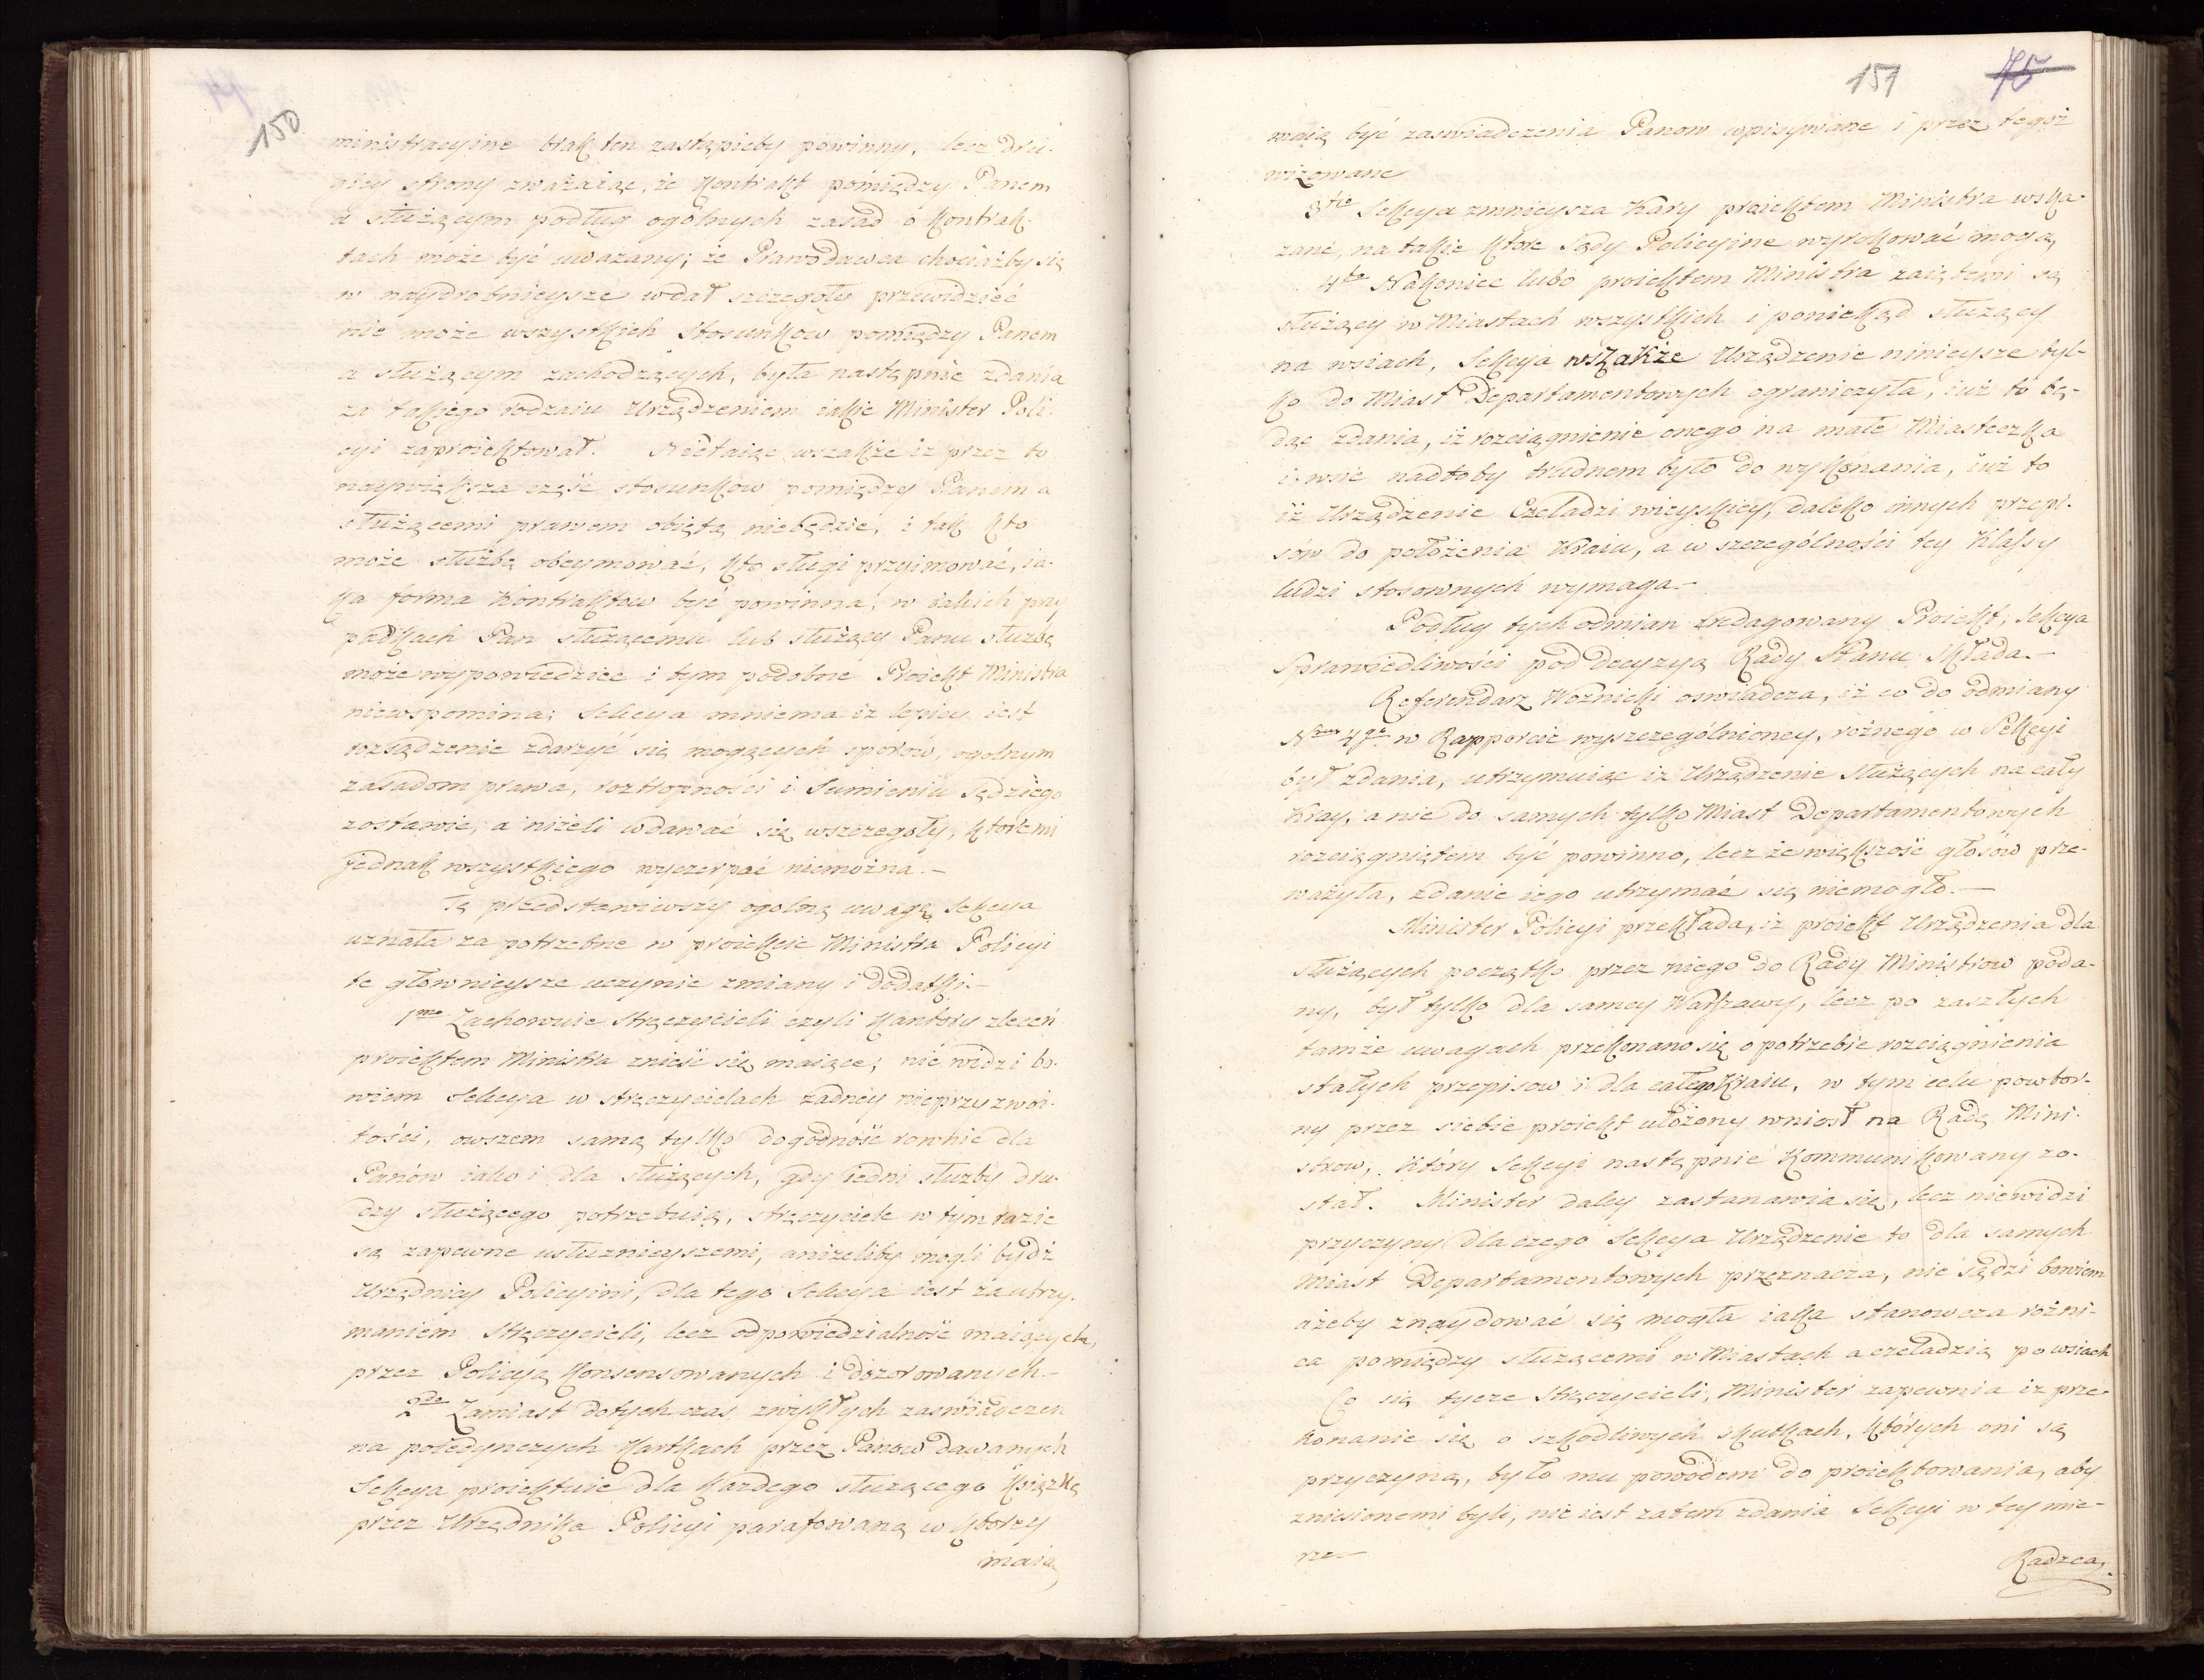 150
ministracyine brak ten zastąpićby powinny, lecz dru-
giey strony zważaiąc, że Kontrakt pomiędzy Panem
a służącym podług ogólnych zasad o Kontrak-
tach może być uważany; że Prawodawca chociażby się
w naydrobnieysze wdał szczegóły przewidzieć
nie może wszystkich stosunkow pomiędzy Panem
a służącym zachodzących, była następnie zdania
za takiego rodzaiu Urządzeniem iakie Minister Poli-
cyi zaproiektował. Nietaiąc wszakże iż przez to
naywiększa część stosunkow pomiędzy Panem a
służącemi prawem obiętą niebędzie, i tak kto
może służbę obeymować, kto sługi przyimować, ia-
ka forma Kontraktow być powinna, w iakich przy
padkach Pan służącemu lub służący Panu służbę
może wypowiedziec i tym podobne Proiekt Ministra
niewspomina; Sekcya mniema iż lepiey iest
rozsądzenie zdarzyć się mogących sporów, ogolnym
zasadom prawa, roztropności i Sumieniu Sędziego
zostawić, a niżeli wdawać się wszczegoły, któremi
jednak wszystkiego wyczerpać niemożna.—
Tę przedstawiwszy ogolną uwagę Sekcya
uznała za potrzebne w proiekcie Ministra Policyi
te głownieysze uczynić zmiany i dodatki.—
1mo Zachowuie Stręczycieli czyli Kantory zleceń
proiektem Ministra znieść się maiące; nie widzi bo-
wiem Sekcya w stręczycielach żadnéy nieprzyzwoi-
tości, owszem samą tylko dogodność rownie dla
Panów iako i dla służących, gdy iedni służby dru-
dzy służącego potrzebuią, stręczyciele w tym razie
są zapewne usłużnieyszemi, aniżeliby mogli bydź
Urzędnicy Policyini, dla tego Sekcya iest za utrzy-
maniem Stręczycieli, lecz odpowiedzialność maiących,
przez Policyą Konsensowanych i dozorowanych—
2do Zamiast dotychczas zwykłych zaświadczen
na poiedynczych Kartkach przez Panow dawanych
Sekcya proiektuie dla każdego służącego Książkę
przez Urzędnika Policyi parafowaną w ktorey
maią
151 75
maią być zaswiadczenia Panow wpisywane i przez tegoż
wizowane
3tio Sekcya zmnieysza Kary proiektem Ministra wska-
zane, na takie ktore Sądy Policyine wyrokować mogą,
4to Nakoniec lubo proiektem Ministra zaięteni są
służący w Miastach wszystkich i poniekąd służący
na wsiach, Sekcya wszakże Urządzenie ninieysze tyl-
ko do Miast Departamentowych ograniczyła, iuż to bę-
dąc zdania, iż rozciągnienie onego na małe Miasteczka
i wsie nadtoby trudnem było do wykonania, iuż to
iż Urządzenie Czeladzi wieyskiey, daleko innych przepi-
sów do położenia Kraiu, a w szczególności tey Klassy
ludzi stosownych wymaga.—
Podług tych odmian zredagowany Proiekt, Sekcya
Sprawiedliwości pod decyzyą Rady Stanu składa.—
Referendarz Woźnicki oswiadcza, iż co do odmiany
Nrem 4go w Rapporcie wyszczególnioney, rożnego w Sekcyi
był zdania, utrzymuiąc iż Urządzenie służących na cały
Kray, a nie do samych tylko Miast Departamentowych
rozciągniętem być powinno, lecz że większość głosów prze-
ważyła, zdanie iego utrzymać się niemogło.—
Minister Policyi przekłada, iż proiekt Urządzenia dla
służących początko przez niego do Rady Ministrow poda-
ny, był tylko dla samey Warszawy, lecz po zaszłych
tamże uwagach przekonano się o potrzebie rozciągnienia
stałych przepisow i dla całego Kraiu, w tym celu powtor-
ny przez siebie proiekt ułożony wniosł na Radę Mini-
strow, który Sekcyi następnie Kommunikowany zo-
stał. Minister daley zastanawia się, lecz niewidzi
przyczyny dlaczego Sekcya Urządzenie to dla samych
Miast Departamentowych przeznacza, nie sądzi bowiem
ażeby znaydować się mogła iaka stanowcza rożni-
ca pomiędzy służącemi w Miastach a czeladzią po wsiach
Co się tycze Stręczycieli, Minister zapewnia iż prze-
konanie się o szkodliwych skutkach, których oni są
przyczyną, było mu powodem do proiektowania, aby
zniesionemi byli, nie iest zatem zdania Sekcyi w tey mie-
rze—
Radzca